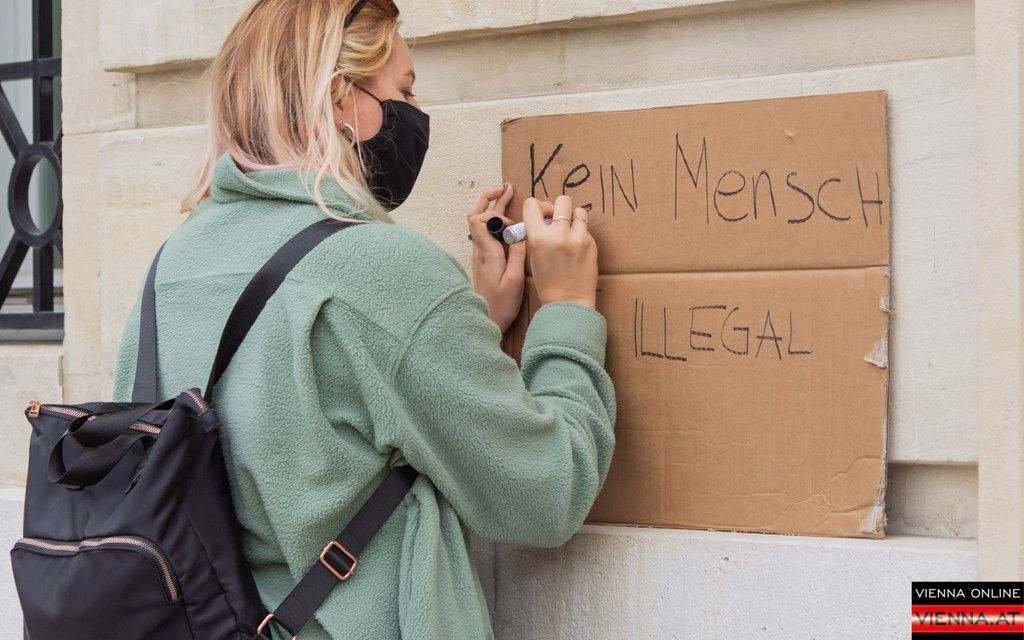 Kein Mensch
ILLEGAL
VIENNA ONLINE
VIENNA.AT